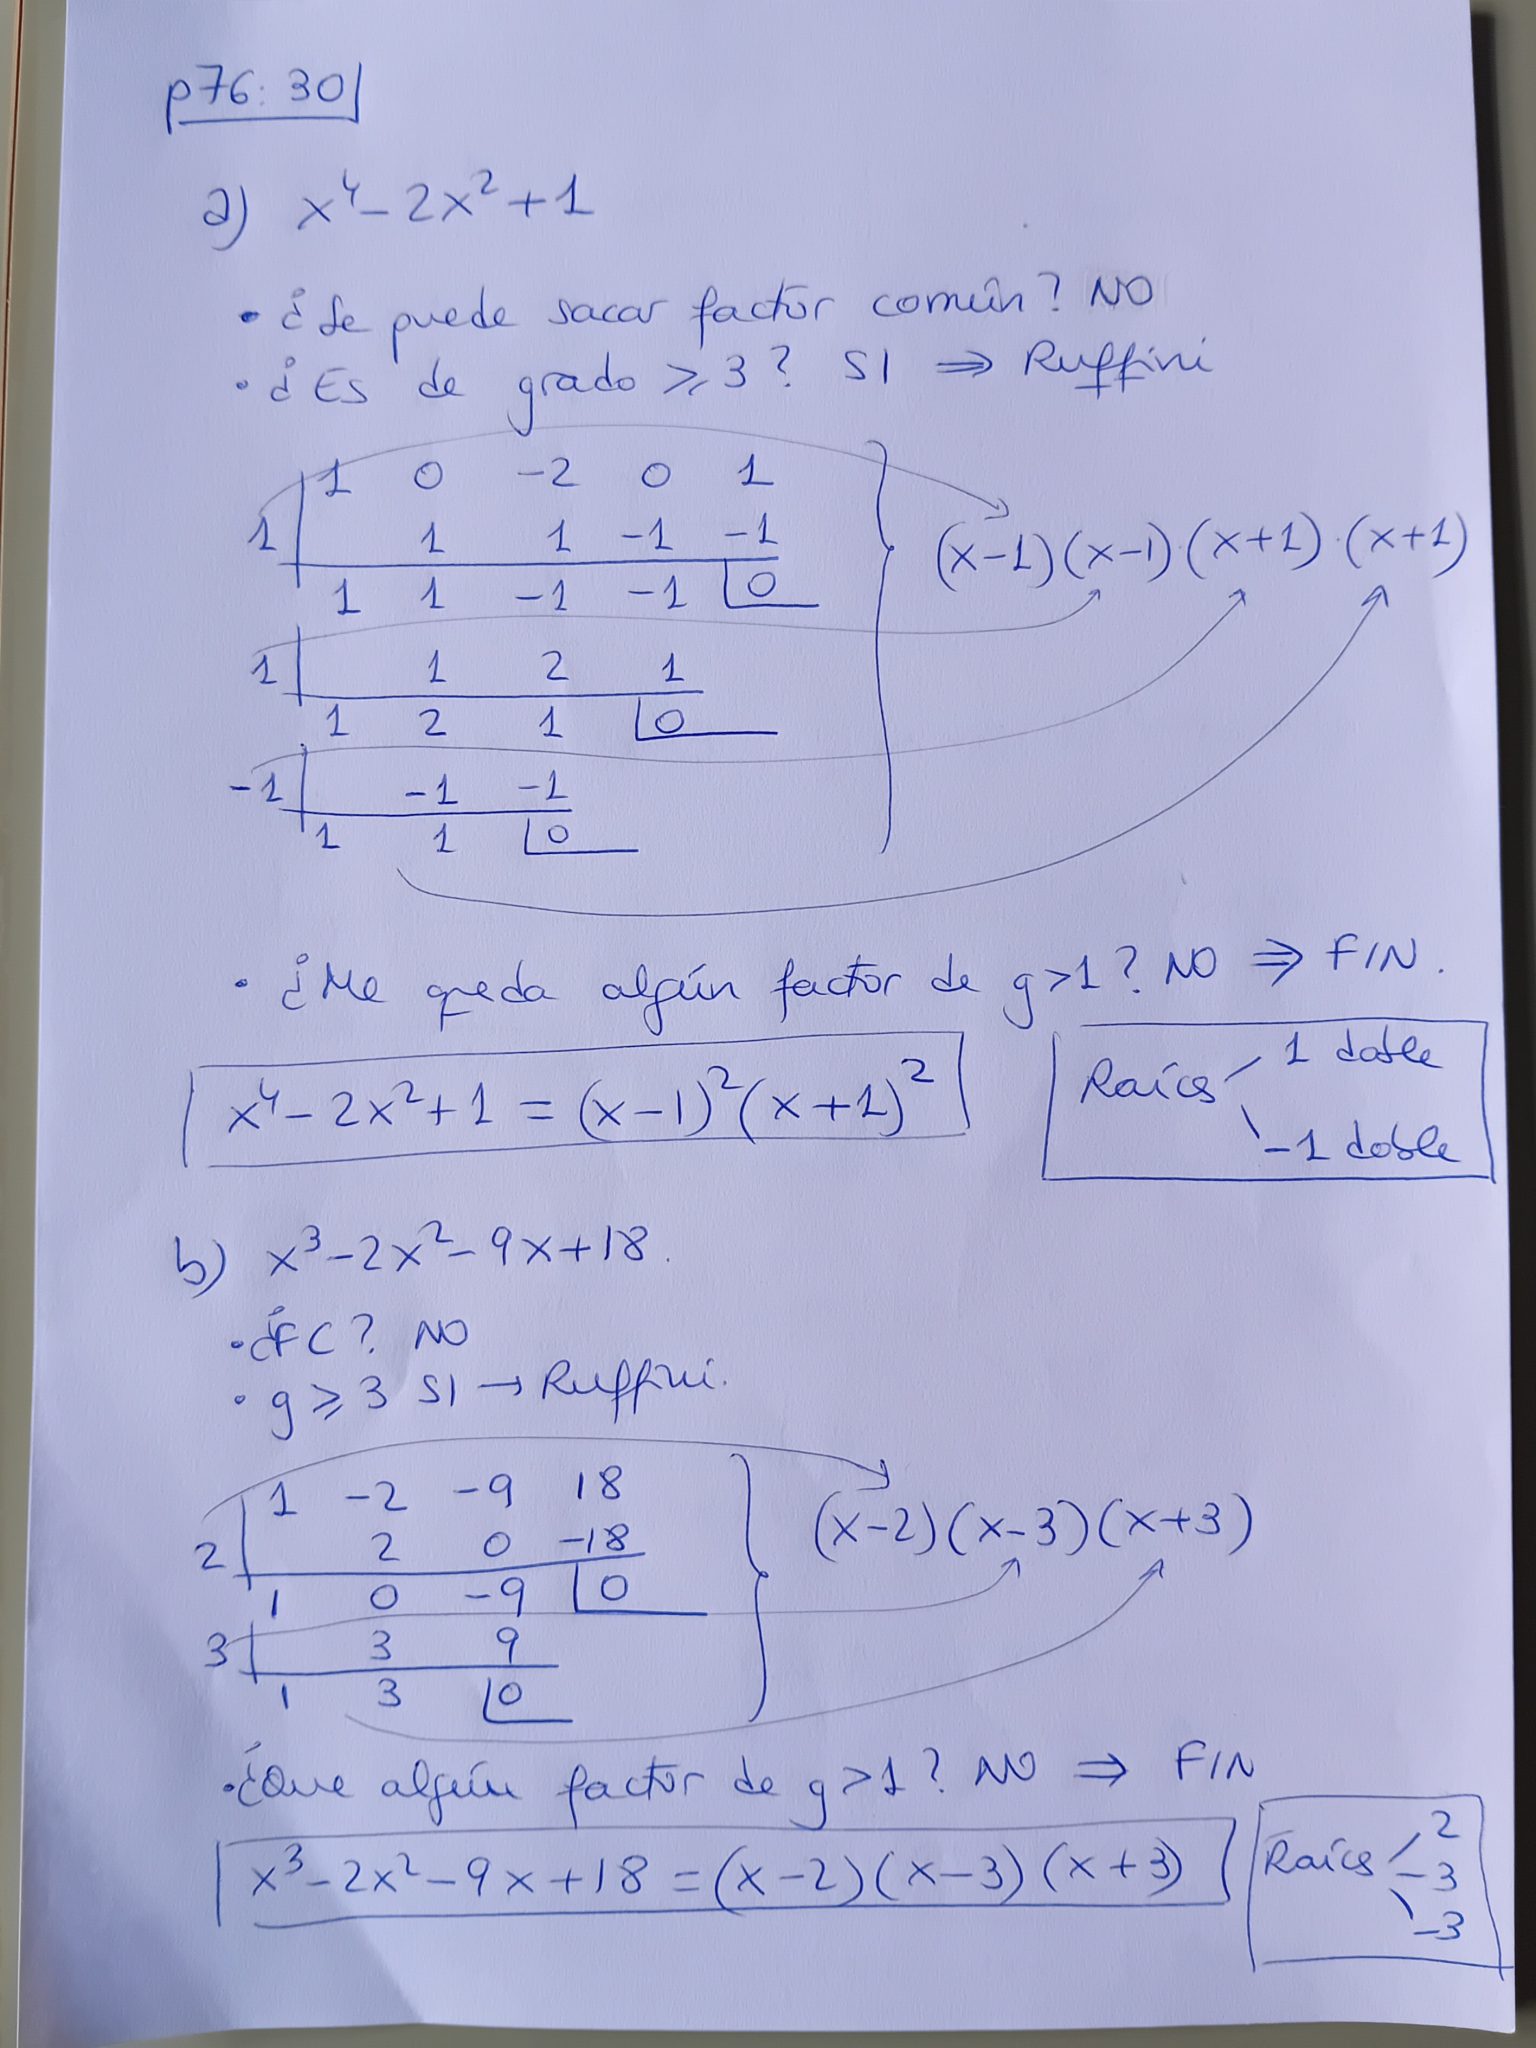 p76: 30
a) x⁴-2x²+1
• ¿Se puede sacar factor común? NO
• ¿Es de grado ≥3? SI ⇒ Ruffini
1 0 -2 0 1
1 1 1 -1 -1
1 1 -1 -1 0
(x-1)(x-1)·(x+1)·(x+1)
1 1 2 1
1 2 1 0
-1 -1 -1
1 1 0
• ¿Me queda algún factor de g>1? NO ⇒ FIN.
x⁴-2x²+1 = (x-1)²(x+1)²
Raíces 1 doble
-1 doble
b) x³-2x²-9x+18.
• ¿FC? NO
• g≥3 SI → Ruffini.
1 -2 -9 18
2 2 0 -18
1 0 -9 0
(x-2)(x-3)(x+3)
3 3 9
1 3 0
• ¿Que algún factor de g>1? NO ⇒ FIN
x³-2x²-9x+18 = (x-2)(x-3)(x+3)
Raíces 2
3
-3